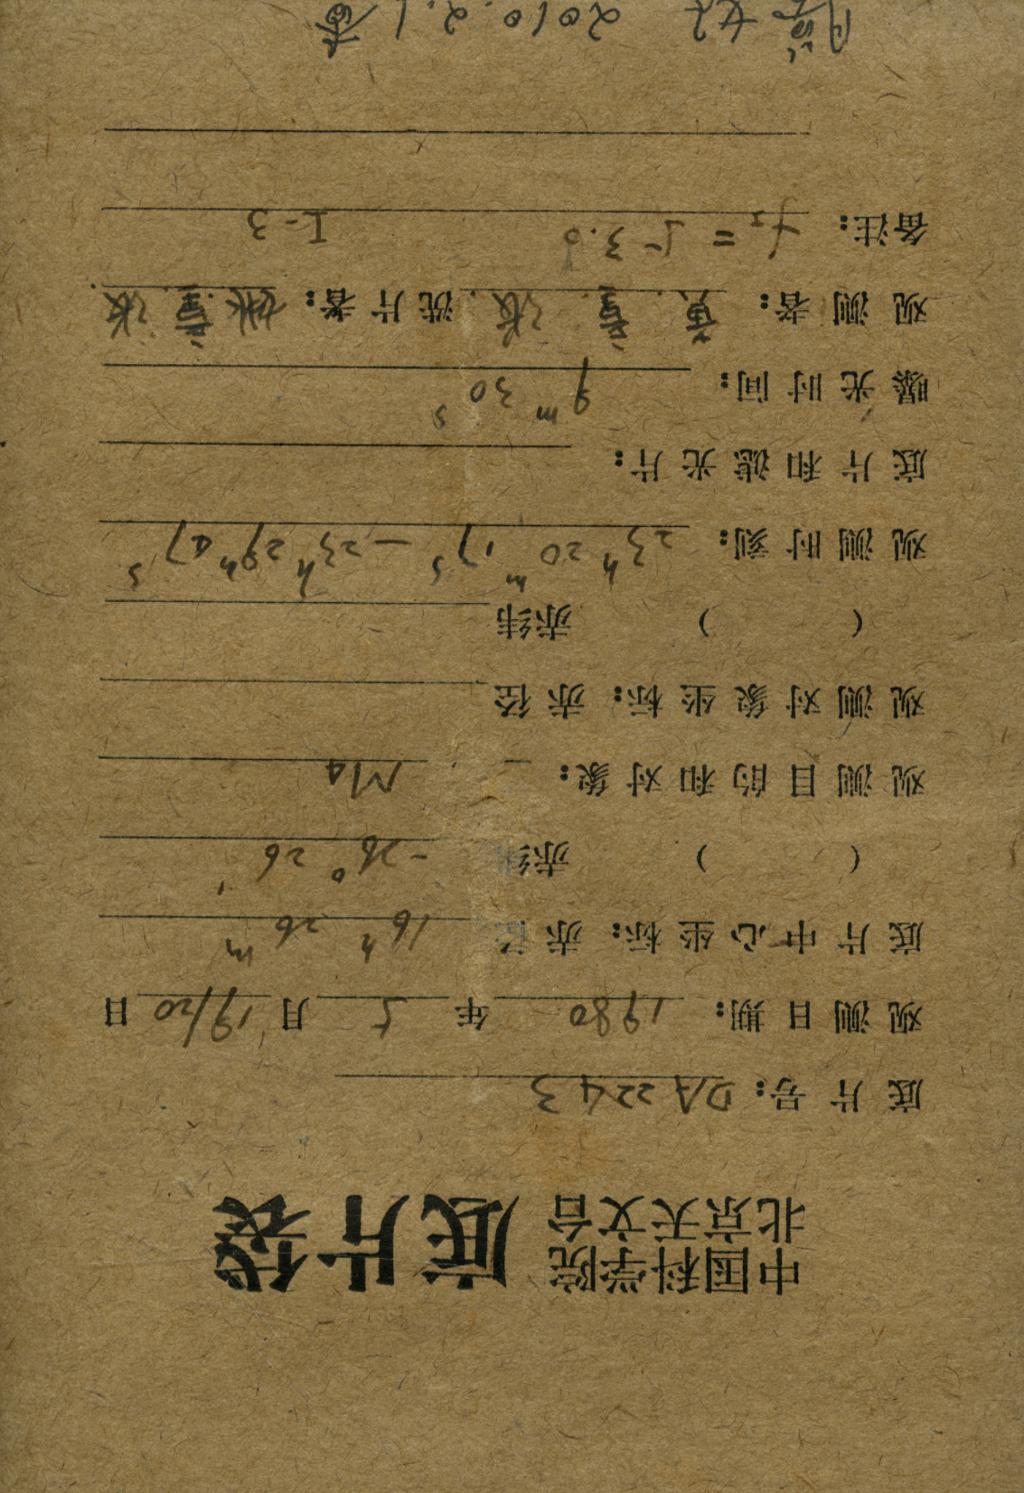 中国科学院
北京天文台 底片袋
底片号: DA2243
观测日期: 1980 年 5 月 19/20 日
底片中心坐标: 赤径 16h 26m
( ) 赤纬 -26° 26'
观测目的和对象: M4
观测对象坐标: 赤径
( ) 赤纬
观测时刻: 23h 20m 17s — 23h 29m 47s
底片和滤光片:
曝光时间: 9m 30s
观测者: 黄. 童. 张 洗片者: 姚. 童. 张.
备注: fI = 53.0 I-3
2010.2.1